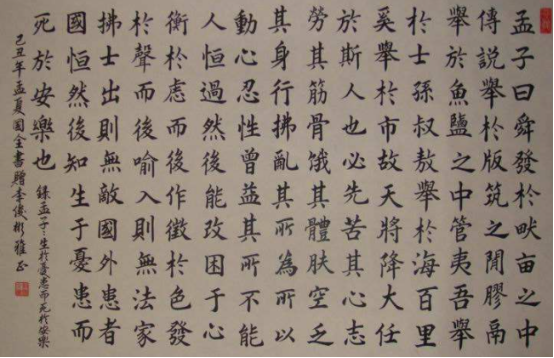 孟子曰舜發於畎亩之中
傳説舉於版筑之間膠鬲
舉於魚鹽之中管夷吾舉
於士孫叔敖舉於海百里
奚舉於市故天將降大任
於斯人也必先苦其心志
勞其筋骨饿其體肤空乏
其身行拂亂其所為所以
動心忍性曾益其所不能
人恒過然後能改困于心
衡於慮而後作徵於色發
於聲而後喻入則無法家
拂士出則無敵國外患者
國恒然後知生于憂患而
死於安樂也 錄孟子:生於憂患而死於安樂
己丑年孟夏國全書贈李俊彬雅正